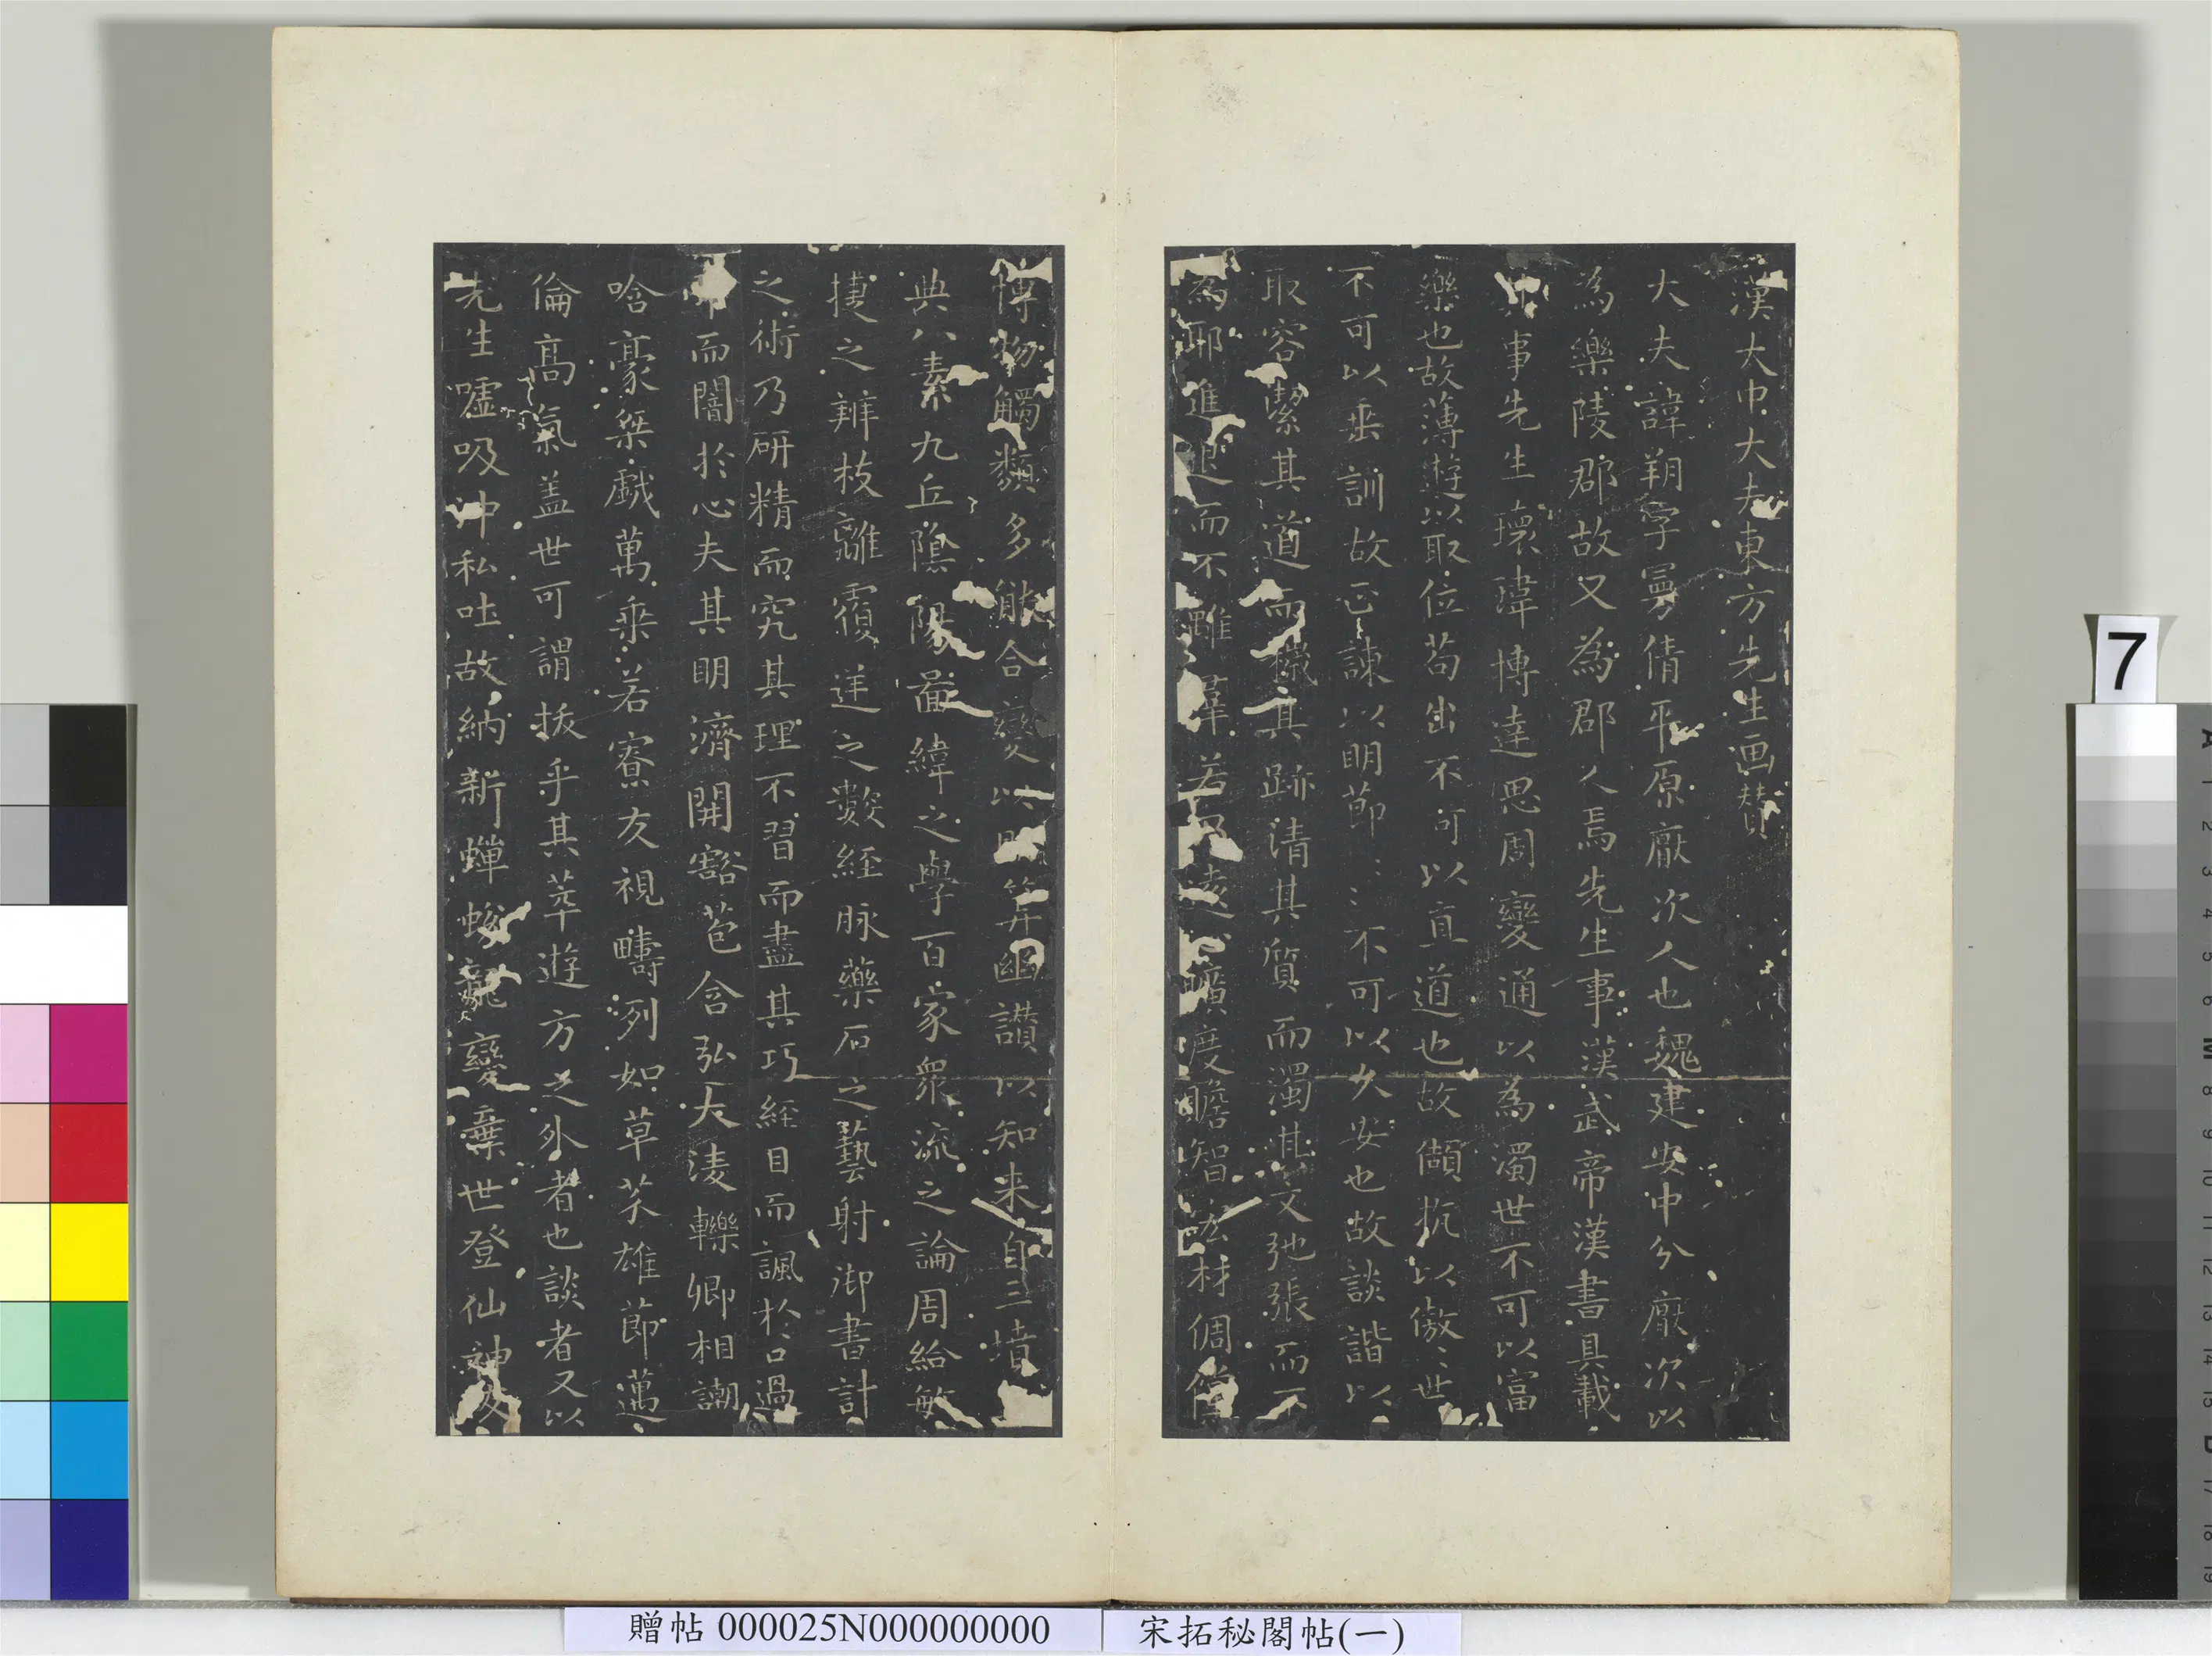 漢大中大夫東方先生画賛
大夫諱朔字曼倩平原厭次人也魏建安中分厭次以
為樂陵郡故又為郡人焉先生事漢武帝漢書具載
其事先生瓌瑋博達思周變通以為濁世不可以富
樂也故薄遊以取位苟出不可以直道也故頡抗以傲〻世
不可以垂訓故正諫以明節〻〻不可以久安也故談諧以
取容絜其道而穢其跡清其質而濁其文弛張而不
為耶進退而不離羣若乃遠心曠度贍智宏材倜儻
博物觸類多能合變以明筭幽讃以知来自三墳
典八素九丘陰陽啚緯之學百家衆流之論周給敏
捷之辨枝離覆逆之數経脉藥石之藝射御書計
之術乃研精而究其理不習而盡其巧経目而諷於口過
耳而闇於心夫其明濟開豁苞含弘大淩轢卿相謿
唅豪桀戲萬乘若寮友視疇列如草芥雄節邁
倫高氣盖世可謂拔乎其萃遊方之外者也談者又以
先生噓吸沖和吐故納新蟬蛻龍變棄世登仙神友
7
贈帖 000025N000000000
宋拓秘閣帖(一)